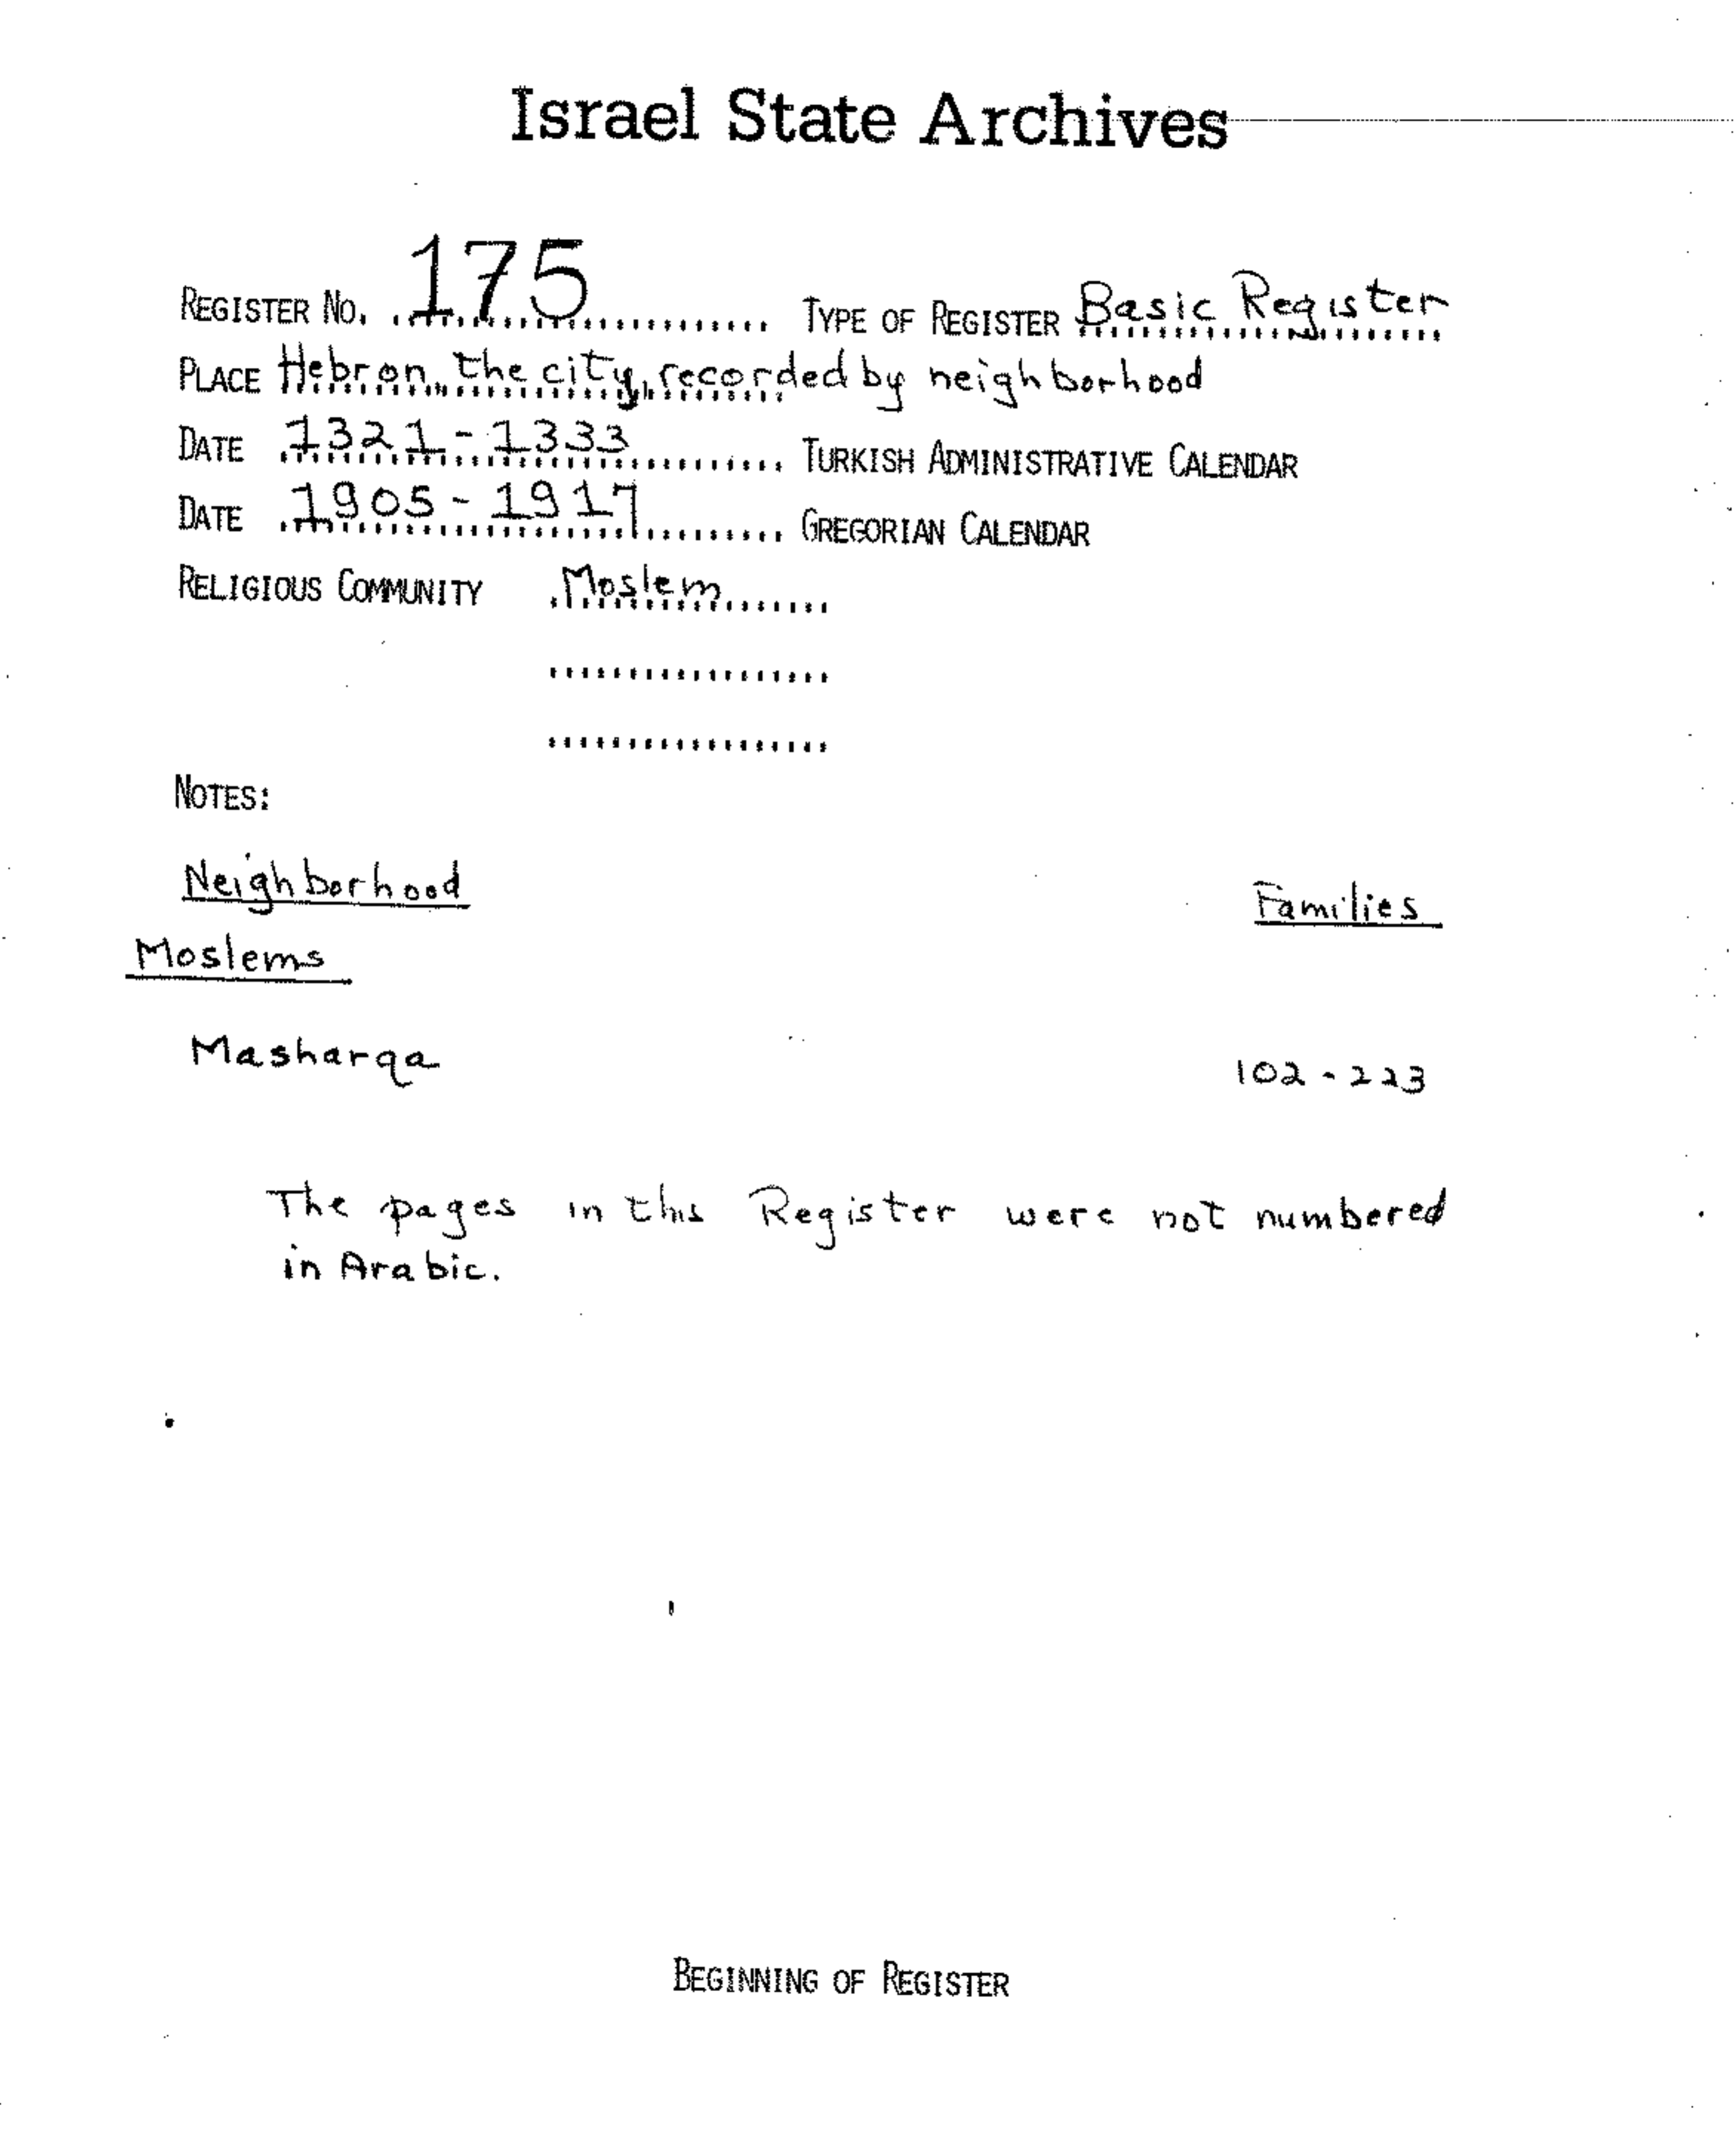 Israel State Archives
REGISTER NO. 175 TYPE OF REGISTER Basic Register
PLACE Hebron, the city, recorded by neighborhood
DATE 1321-1333 TURKISH ADMINISTRATIVE CALENDAR
DATE 1905-1917 GREGORIAN CALENDAR
RELIGIOUS COMMUNITY Moslem
NOTES:
Neighborhood Families
Moslems
Masharqa 102-223
The pages in this Register were not numbered
in Arabic.
BEGINNING OF REGISTER